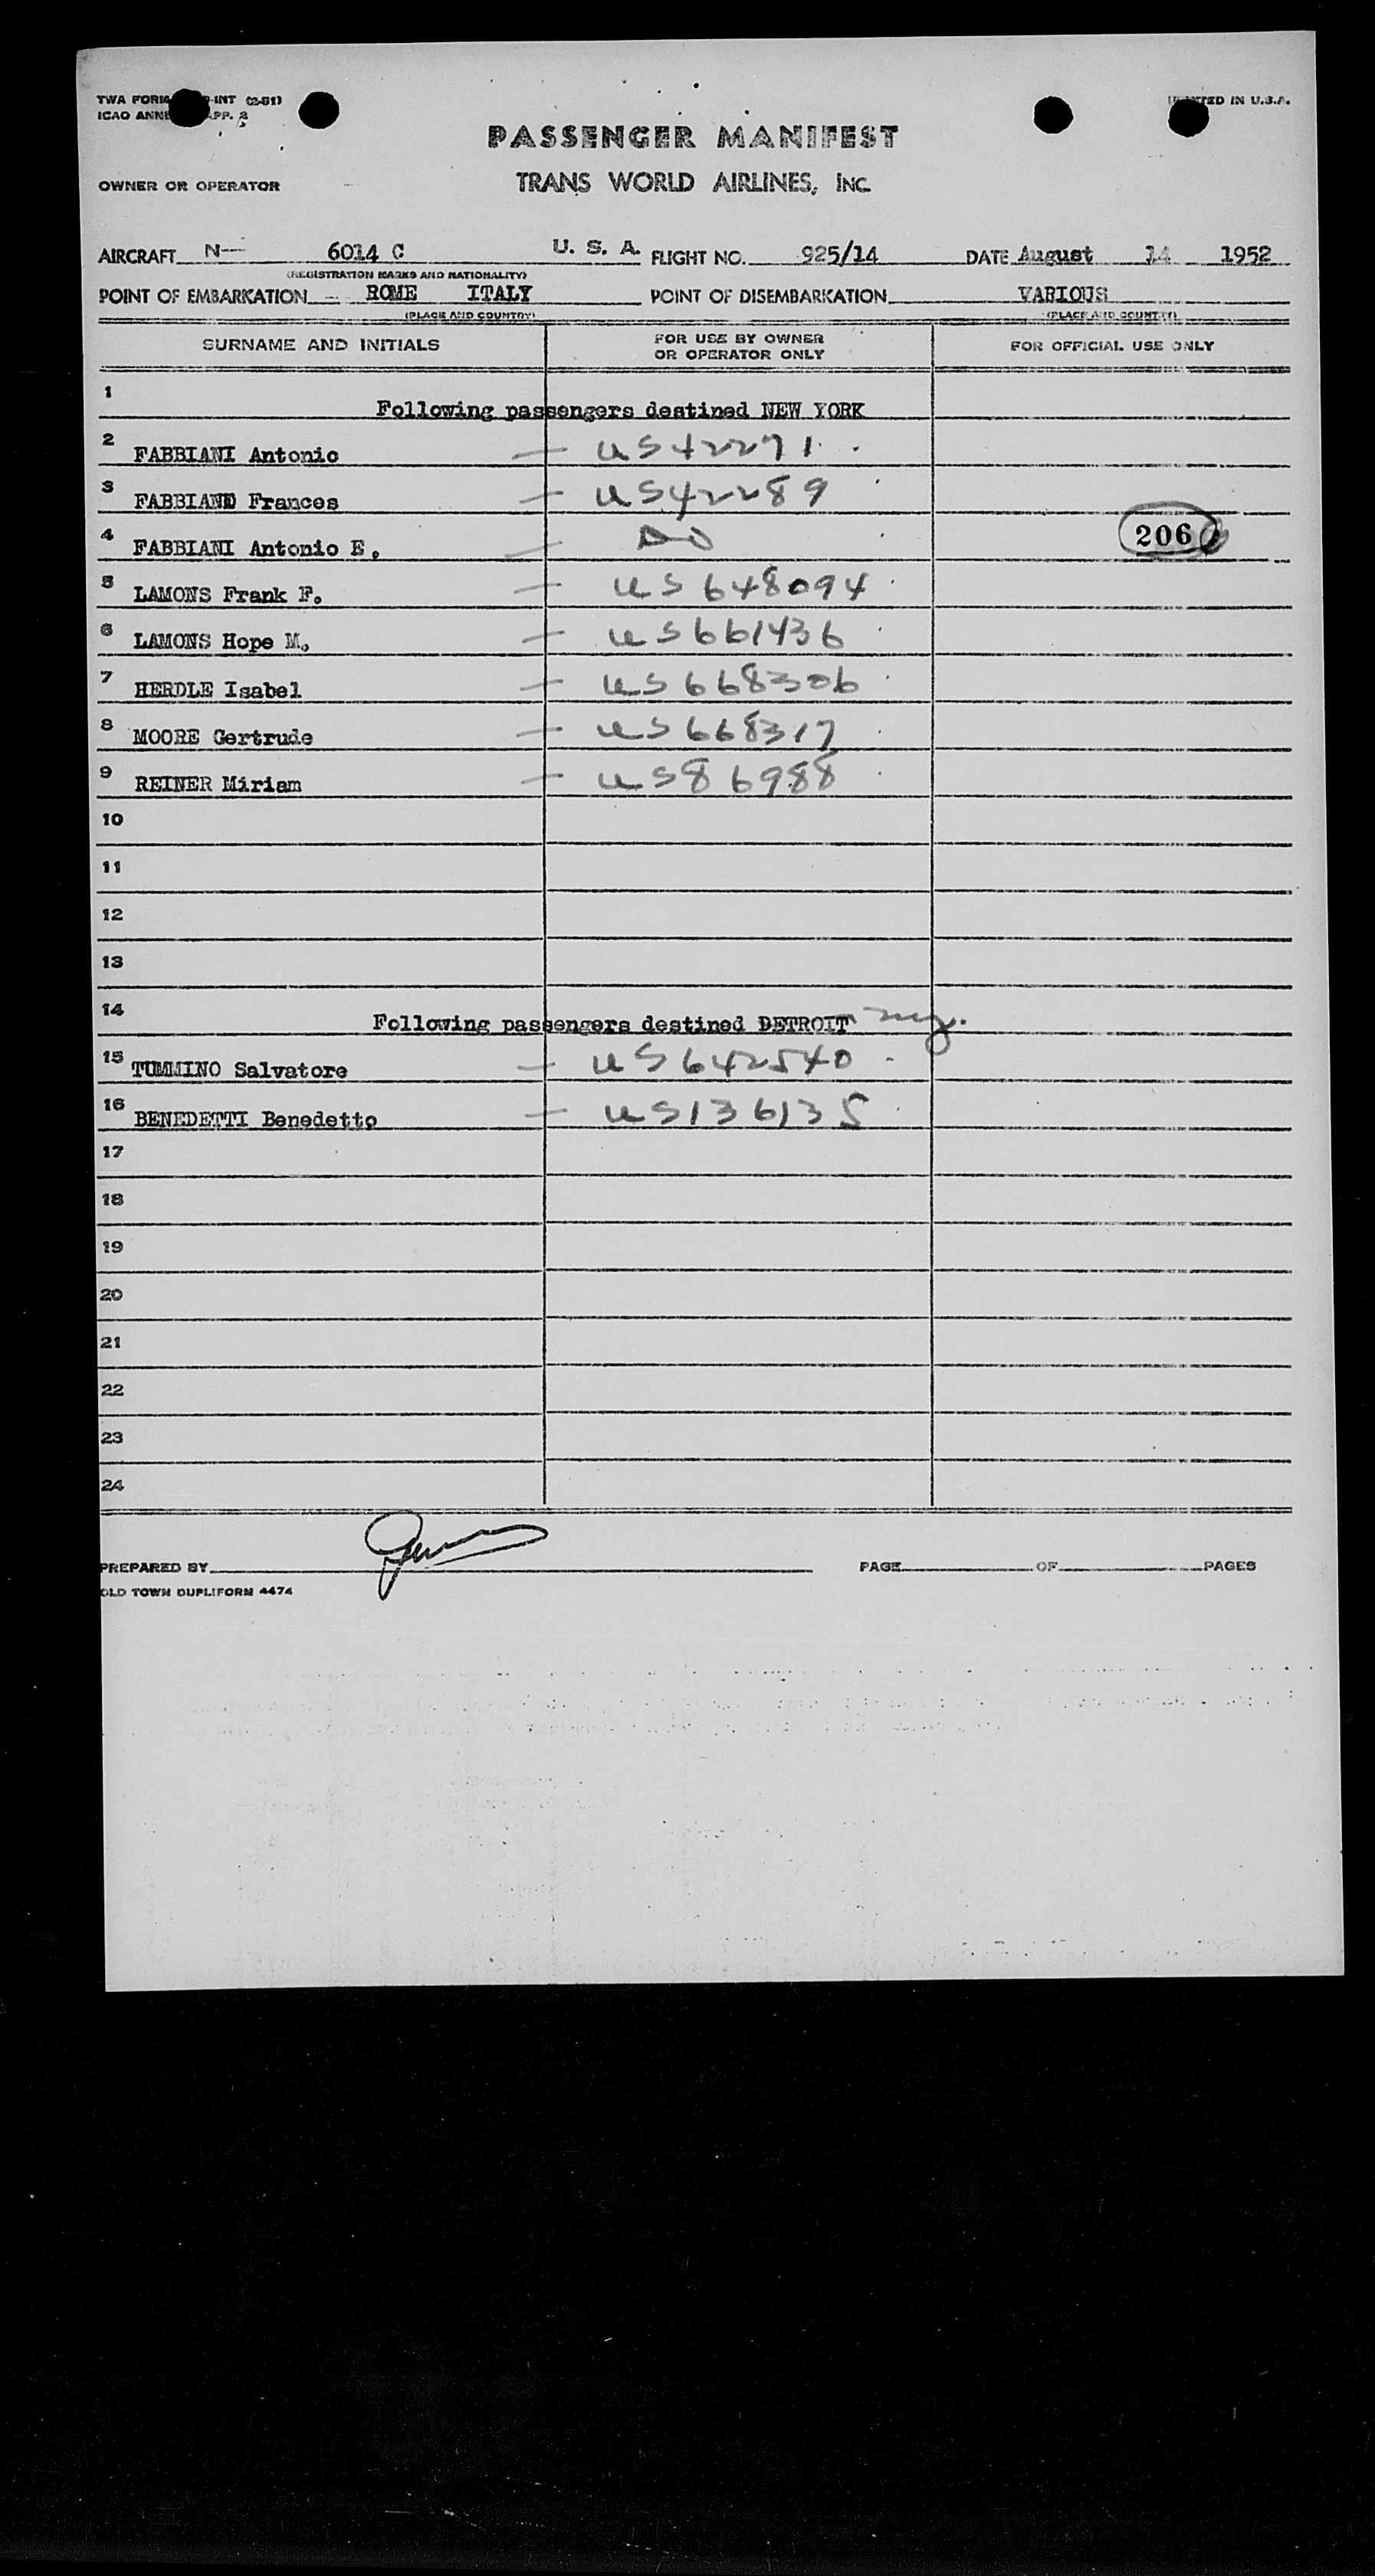 TWA FORM -INT (2-51)
ICAO ANNE APP. 2
PRINTED IN U.S.A.
PASSENGER MANIFEST
OWNER OR OPERATOR TRANS WORLD AIRLINES, INC.
AIRCRAFT N— 6014 C U. S. A. FLIGHT NO. 925/14 DATE August 14 1952
(REGISTRATION MARKS AND NATIONALITY)
POINT OF EMBARKATION ROME ITALY POINT OF DISEMBARKATION VARIOUS
(PLACE AND COUNTRY) (PLACE AND COUNTRY)
SURNAME AND INITIALS FOR USE BY OWNER OR OPERATOR ONLY FOR OFFICIAL USE ONLY
1 Following passengers destined NEW YORK
2 FABBIANI Antonio — US42271
3 FABBIANI Frances — US42289
4 FABBIANI Antonio E. — DO 206
5 LAMONS Frank F. — US 648094
6 LAMONS Hope M. — US661436
7 HERDLE Isabel — US 668306
8 MOORE Gertrude — US 668317
9 REINER Miriam — US86988
10
11
12
13
14 Following passengers destined DETROIT ny.
15 TUMMINO Salvatore — US 642540
16 BENEDETTI Benedetto — US136135
17
18
19
20
21
22
23
24
PREPARED BY PAGE OF PAGES
OLD TOWN DUPLIFORM 4474